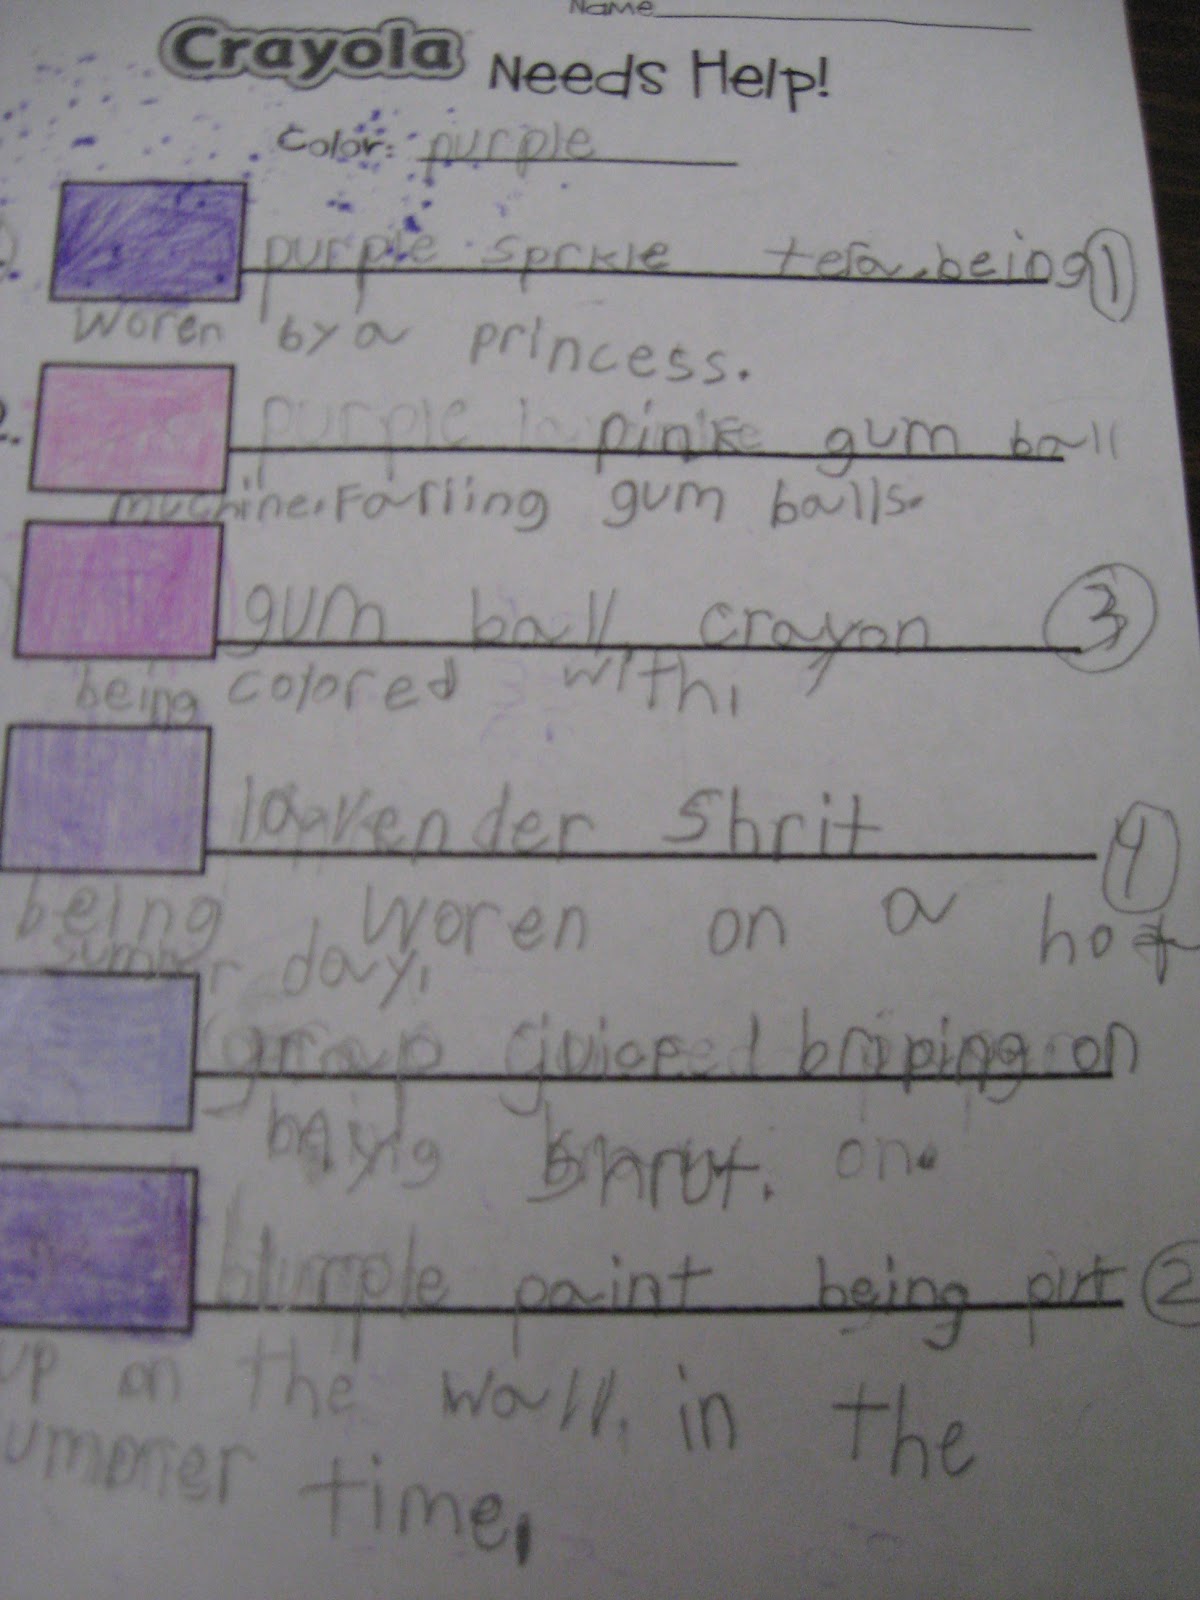 Name
Crayola Needs Help!
Color: purple
purple sprkle tera.being 1
woren by a princess.
2. purple pinke gum ball
muchine.Farling gum balls.
gum ball crayon 3
being colored with.
lavender Shrit 4
being woren on a hot
sumber day.
grap on
being on.
blurple paint being 2
up on the wall. in the
ummer time.